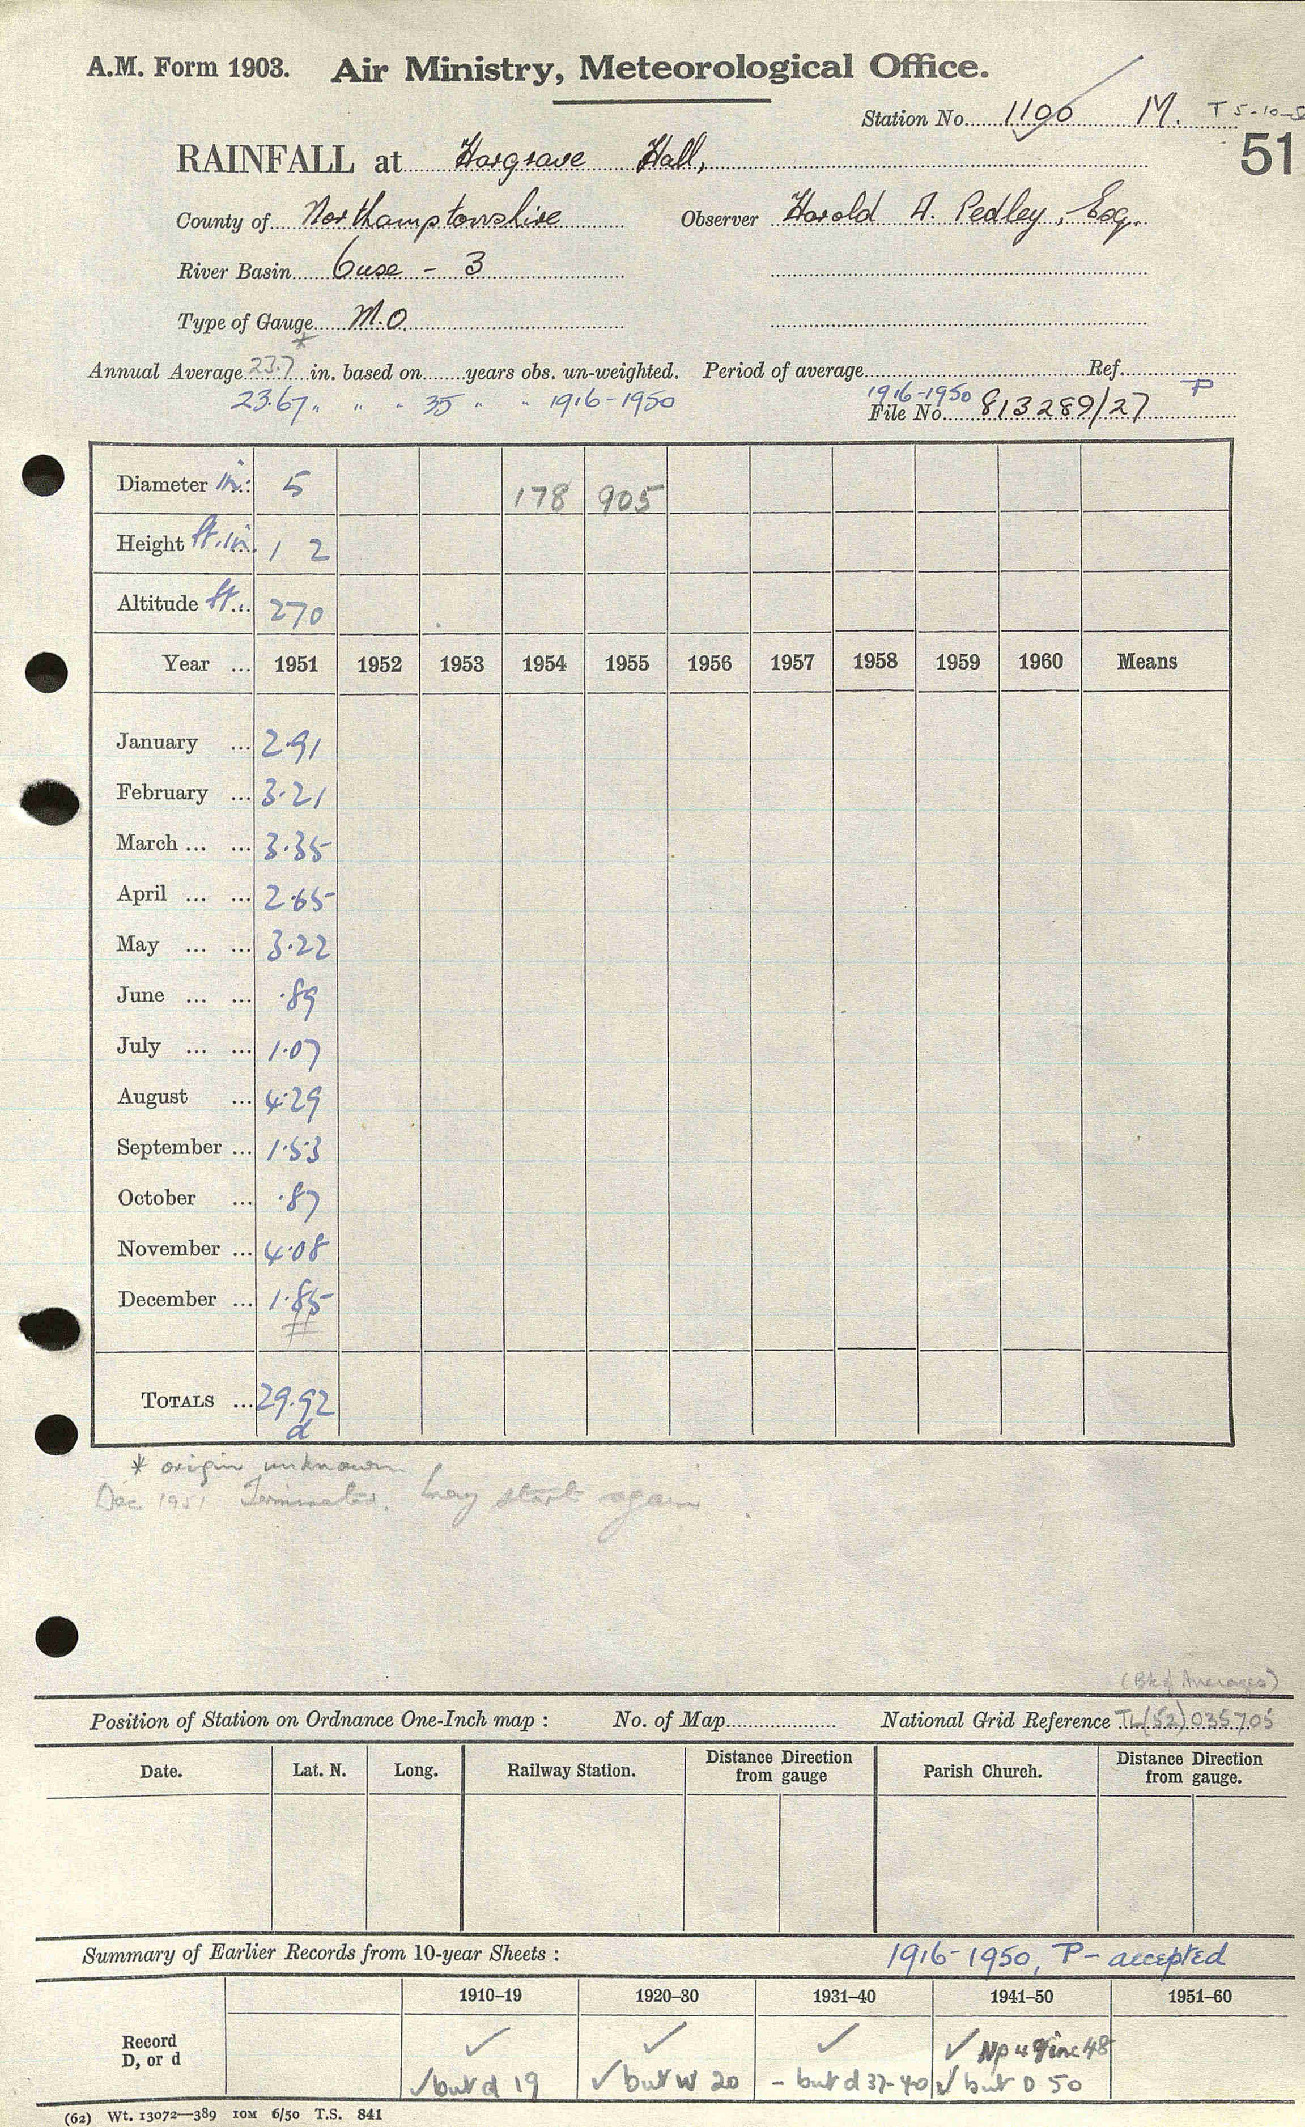 A.M. Form 1903. Air Ministry, Meteorological Office.
Station No. 1100 M. T 5-10-
51
RAINFALL at Hargrave Hall,
County of Northamptonshire Observer Harold A. Pedley, Esq.
River Basin Ouse - 3
Type of Gauge M.O.
Annual Average 23.7* in. based on years obs. un-weighted. Period of average Ref.
23.67 " " " 35 " " 1916-1950 1916-1950 P
File No. 813289/27
Diameter in: 5 178 905
Height ft. in. 1 2
Altitude ft. 270
Year ... 1951 1952 1953 1954 1955 1956 1957 1958 1959 1960 Means
January ... 2.91
February ... 3.21
March ... ... 3.35
April ... ... 2.65
May ... ... 3.22
June ... ... .89
July ... ... 1.07
August ... 4.29
September ... 1.53
October ... .87
November ... 4.08
December ... 1.85
TOTALS ... 29.92
d
* origin unknown
Dec 1951 Terminated. may start again
(Bk of Averages)
Position of Station on Ordnance One-Inch map : No. of Map National Grid Reference TL(52)035705
Date. Lat. N. Long. Railway Station. Distance Direction from gauge Parish Church. Distance Direction from gauge.
Summary of Earlier Records from 10-year Sheets : 1916-1950, P - accepted
1910–19 1920–30 1931–40 1941–50 1951–60
Record D, or d ✓ ✓ ✓ ✓
✓ but d 19 ✓ but W 20 - but d 37-40 ✓ but D 50
(62) Wt. 13072—389 10M 6/50 T.S. 841